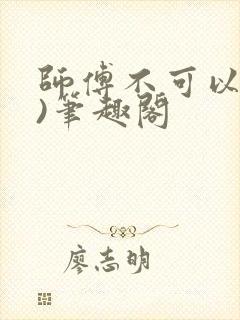 師傅不可以
)筆趣閣
廖志明